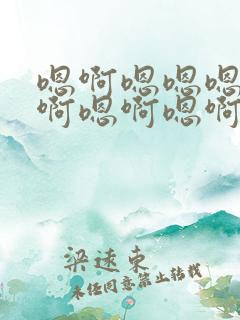 嗯啊嗯嗯嗯
啊嗯啊嗯啊
梁速东
未经同意禁止转载